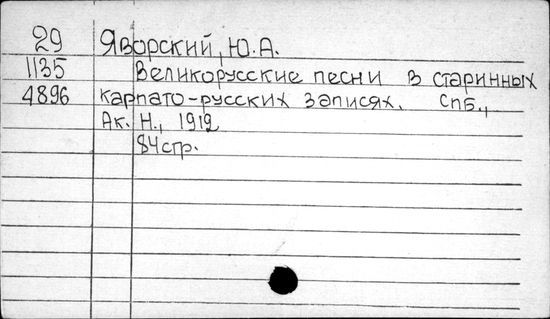 29 Яворский, Ю.А.
1135 Великорусские песни в старинных
4896 карпато-русских записях. Спб.,
Ак. Н., 1912
84стр.